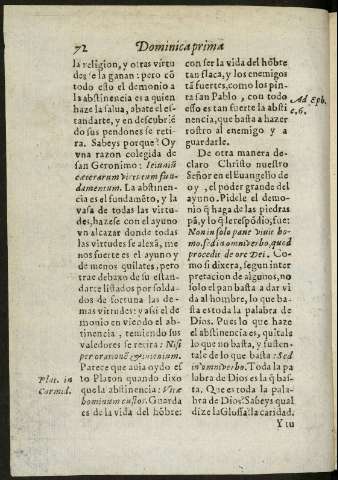 72 Dominica prima
la religion, y otras virtu
des se la ganan: pero cõ
todo esto el demonio a
la abstinencia es a quien
haze la salua, abate el es-
tandarte, y en descubriẽ
do sus pendones se reti
ra. Sabeys porque? Oy
vna razon colegida de
san Geronimo: Ieiuniũ
cæterarum virtutum fun-
damentum. La abstinen-
cia es el fundamẽto, y la
vasa de todas las virtu-
des, hazese con el ayuno
vn alcazar donde todas
las virtudes se alexã, me
nos fuerte es el ayuno y
de menos quilates, pero
trae debaxo de su estan-
darte listados por solda-
dos de fortuna las de-
mas virtudes: y assi el de
monio en viẽdo el absti-
nencia, temiendo sus
valedores se retira: Nisi
per orationẽ & ieiunium.
Parece que auia oydo es
to Platon quando dixo
que la abstinencia: Vitæ
hominium custos. Guarda
es de la vida del hõbre:
Plat. in
Carmid.
con ser la vida del hõbre
tan flaca, y los enemigos
tã fuertes, como los pin-
ta san Pablo, con todo
esso es tan fuerte la absti
nencia, que basta a hazer
rostro al enemigo y a
guardarle.
Ad Eph.
c.6.
De otra manera de-
claro Christo nuestro
Señor en el Euangelio de
oy, el poder grande del
ayuno. Pidele el demo-
nio q̃ haga de las piedras
pã, y lo q̃ le respõdio, fue:
Non in solo pane viuit ho-
mo, sed in omni verbo, quod
procedit de ore Dei. Co-
mo si dixera, segun inter
pretacion de algunos, no
solo el pan basta a dar vi
da al hombre, lo que ba-
sta es toda la palabra de
Dios. Pues lo que haze
el abstinencia es, quitals
lo que no basta, y susten-
tale de lo que basta: Sed
in omni verbo. Toda la pa
labra de Dios es la q̃ bas-
ta. Que es toda la pala-
bra de Dios? Sabeys qual
dize la Glossa? la caridad.
Y tu